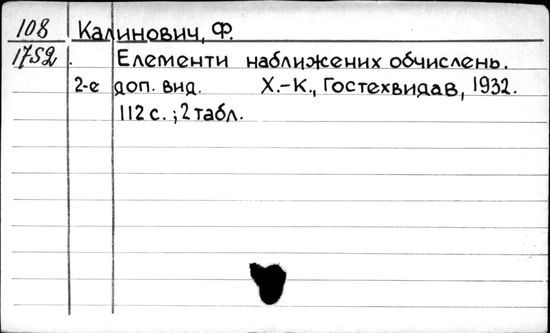 108 Калинович, Ф.
1752. Елементи наближених обчислень.
2-е доп. вид. Х.-К., Гостехвидав, 1932.
112 с.; 2 табл.